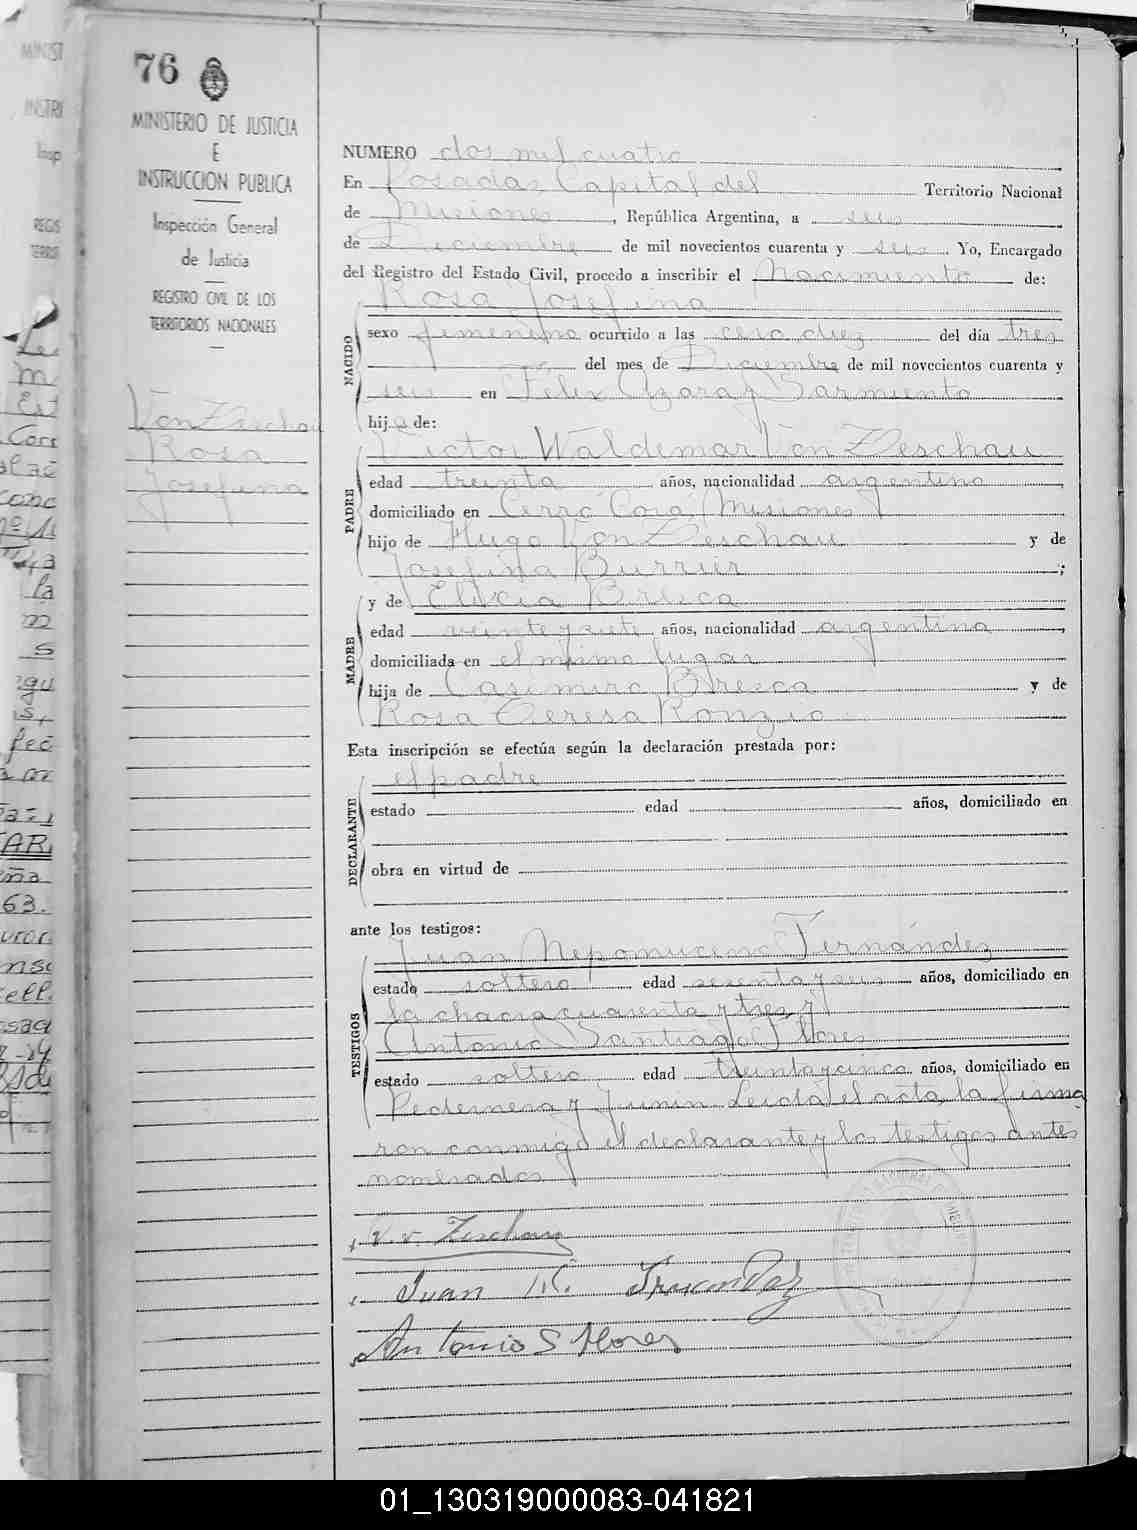 76
MINISTERIO DE JUSTICIA
E
INSTRUCCION PUBLICA
Inspección General
de Justicia
REGISTRO CIVIL DE LOS
TERRITORIOS NACIONALES
Von Zeschau
Rosa
Josefina
NUMERO dos mil cuatro
En Posadas Capital del Territorio Nacional
de Misiones, República Argentina, a seis
de Diciembre de mil novecientos cuarenta y seis. Yo, Encargado
del Registro del Estado Civil, procedo a inscribir el Nacimiento de:
Rosa Josefina
NACIDO
sexo femenino ocurrido a las cero diez del día tres
del mes de Diciembre de mil novecientos cuarenta y
seis en Felix Azara y Sarmiento
hija de:
Victor Waldemar Von Zeschau
PADRE
edad treinta años, nacionalidad argentino
domiciliado en Cerro Corá (Misiones)
hijo de Hugo Von Zeschau y de
Josefina Burrier;
y de Elixia Brieca
MADRE
edad veinte y siete años, nacionalidad argentina,
domiciliada en el mismo lugar
hija de Casimiro Brieca y de
Rosa Teresa Ronzio
Esta inscripción se efectúa según la declaración prestada por:
el padre
DECLARANTE
estado edad años, domiciliado en
obra en virtud de
ante los testigos:
Juan Nepomuceno Fernández
TESTIGOS
estado soltero edad sesenta y seis años, domiciliado en
la chacra cuarenta y tres y
Antonio Santiago Flores
estado soltero edad treinta y cinco años, domiciliado en
Pedernera y Junin. Leida el acta, la firma
ron conmigo el declarante y los testigos antes
nombrados
V. v. Zeschau
Juan N. Fernandez
Antonio S Flores
01_130319000083-041821